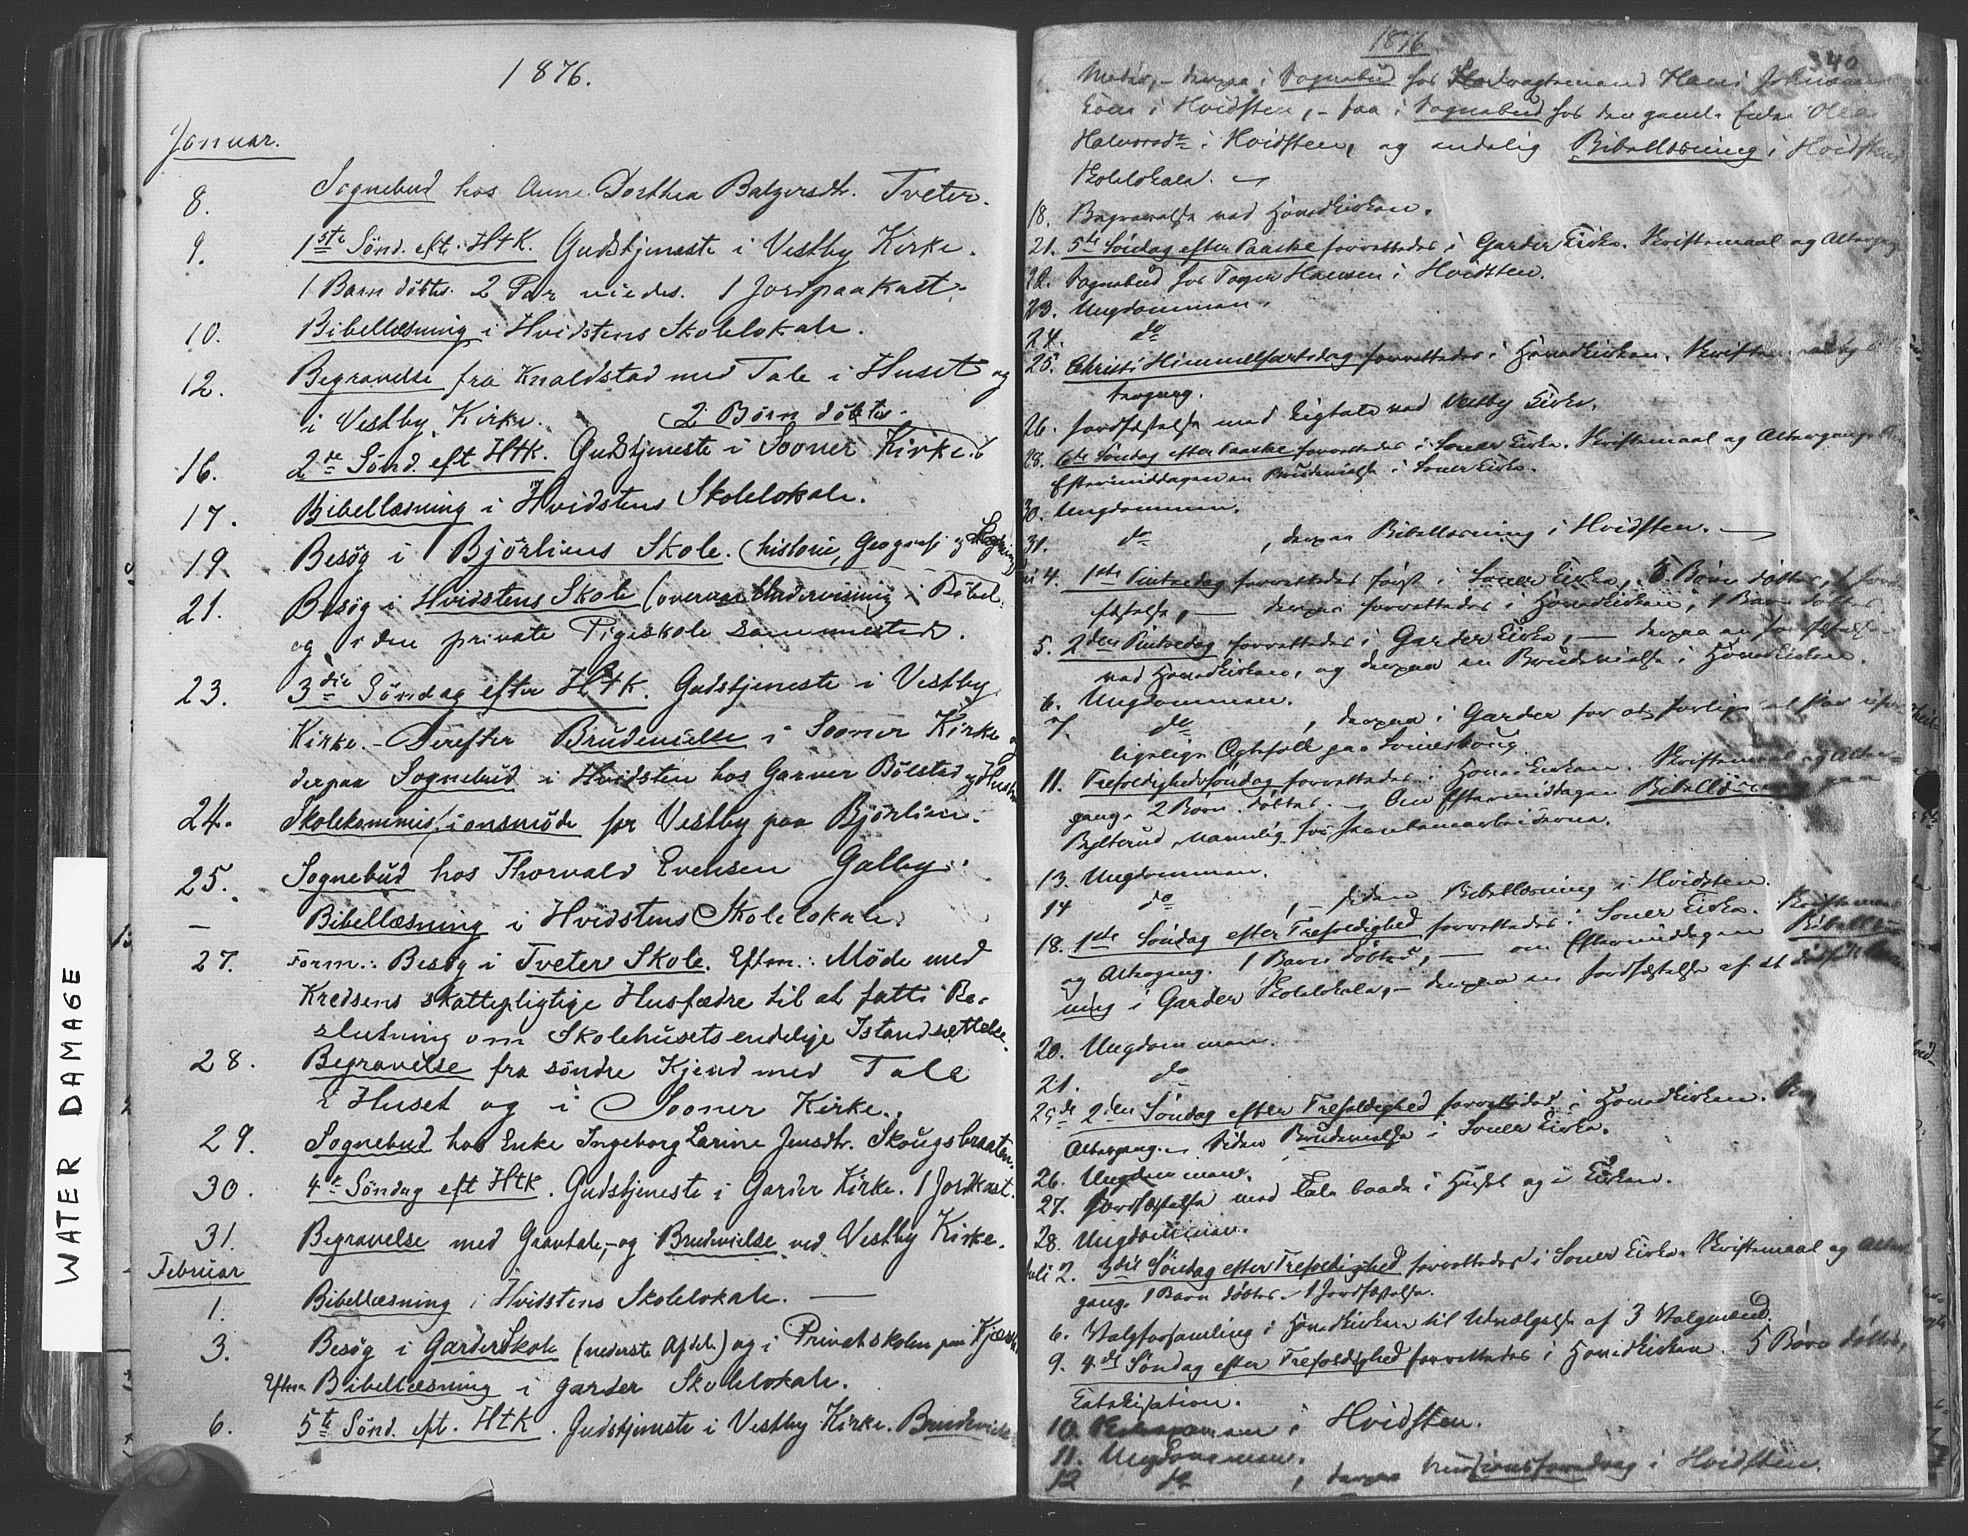 1876.
Januar.
8. Sognebud hos Anne Dorthea Balzersdtr. Tveter.
9. 1ste Sønd. eft. HtK. Gudstjeneste i Vestby Kirke.
1 Barn døbtes. 2 Par viedes. 1 Jordpaakast.
10. Bibellæsning i Hvidstens Skolelokale.
12. Begravelse fra Knaldstad med Tale i Huset og
i Vestby Kirke. 2 Børn døbtes.
16. 2de Sønd. eft HtK. Gudstjeneste i Sooner Kirke.
17. Bibellæsning i Hvidstens Skolelokale.
19. Besøg i Bjørlins Skole. (historie, Geografi og
21. Besøg i Hvidstens Skole (overvar Undervisning i Bibel.
og i den private Pigeskole sammesteds.
23. 3die Søndag efter HtK. Gudstjeneste i Vestby
Kirke. - Derefter Brudevielse i Sooner Kirke
derpaa Sognebud i Hvidsten hos Garver Bølstad og Hustru
24. Skolekommissionsmøde for Vestby paa Bjørlin.
25. Sognebud hos Thorvald Evensen Galby.
— Bibellæsning i Hvidstens Skolelokale.
27. Form.: Besøg i Tveter Skole. Eftm.: Møde med
Kredsens skattepligtige Husfædre til at fatte Be-
slutning om Skolehusets endelige Istandsættelse.
28. Begravelse fra søndre Kjend med Tale
i Huset og i Sooner Kirke.
29. Sognebud hos Enke Ingeborg Larine Jensdtr. Skougsbraaten.
30. 4de Søndag eft HtK. Gudstjeneste i Garder Kirke. 1 Jordkast.
31. Begravelse med Gravtale, - og Brudevielse ved Vestby Kirke.
Februar
1. Bibellæsning i Hvidstens Skolelokale. —
3. Besøg i Garder Skole (nederste Afdel.) og i Privatskolen paa
Eftm. Bibellæsning i Garder Skolelokale.
6. 5te Sønd. eft. HtK. Gudstjeneste i Vestby Kirke. Brudevielse
WATER DAMAGE
1876
340
Møder, - derpaa i Sognebud hos Hans Johnsens
Kone i Hvidsten, - saa i Sognebud hos den gamle Enke
Halvorsdtr i Hvidsten, og endelig Bibellæsning i Hvidstens
Skolelokale. —
18. Begravelse ved Hovedkirken.
21. 5te Søndag efter Paaske forrettedes i Garder Kirke. Skriftemaal og Altergang.
22. Sognebud hos Hansen i Hvidsten.
23. Ungdommen.
24. do
25. Christi Himmelfartsdag forrettedes i Hovedkirken. Skriftem. og Al-
tergang.
26. Jordfæstelse med Ligtale ved Vestby Kirke.
28. 6te Søndag efter Paaske forrettedes i Soner Kirke. Skriftemaal og Altergang.
Eftermiddagen en Brudevielse i Soner Kirke.
30. Ungdommen.
31. do, derpaa Bibellæsning i Hvidsten. —
4. 1ste Pintsedag forrettedes først i Soner Kirke, 5 Børn døbtes, 1 Jord-
fæstelse, — derpaa forrettedes i Hovedkirken, 1 Barn døbtes
5. 2den Pintsedag forrettedes i Garder Kirke, — derpaa en Jordfæstelse
ved Hovedkirken, og derpaa en Brudevielse i Hovedkirken.
6. Ungdommen.
7. do, derpaa i Garder for at forlige et Par
Ægtefolk paa
11. Trefoldighedssøndag forrettedes i Hovedkirken. Skriftemaal og Alter-
gang. 2 Børn døbtes. — Om Eftermiddagen Bibellæsning paa
13. Ungdommen.
14 do, - siden Bibellæsning i Hvidsten.
18. 1ste Søndag efter Trefoldighed forrettedes i Soner Kirke. Skriftemaal
og Altergang. 1 Barn døbtes, — om Eftermiddagen Bibellæs-
ning i Garder Skolelokale, - derpaa en Jordfæstelse af et
20. Ungdommen.
21. do
25de 2den Søndag efter Trefoldighed forrettedes i Hovedkirken.
Altergang. Siden Brudevielse i Soner Kirke.
26. Ungdommen.
27. Jordfæstelse med Tale baade i Huset og i Kirken.
28. Ungdommen.
Juli 2. 3die Søndag efter Trefoldighed forrettedes i Soner Kirke. Skriftemaal og Alter-
gang. 1 Barn døbtes. 1 Jordfæstelse.
6. Valgforsamling i Hovedkirken til Udvælgelse af 3 Valgmænd.
9. 4de Søndag efter Trefoldighed forrettedes i Hovedkirken. 5 Børn døbtes,
Katekisation.
10. i Hvidsten.
11. Ungdommen.
12 do, derpaa Missionsforedrag i Hvidsten.